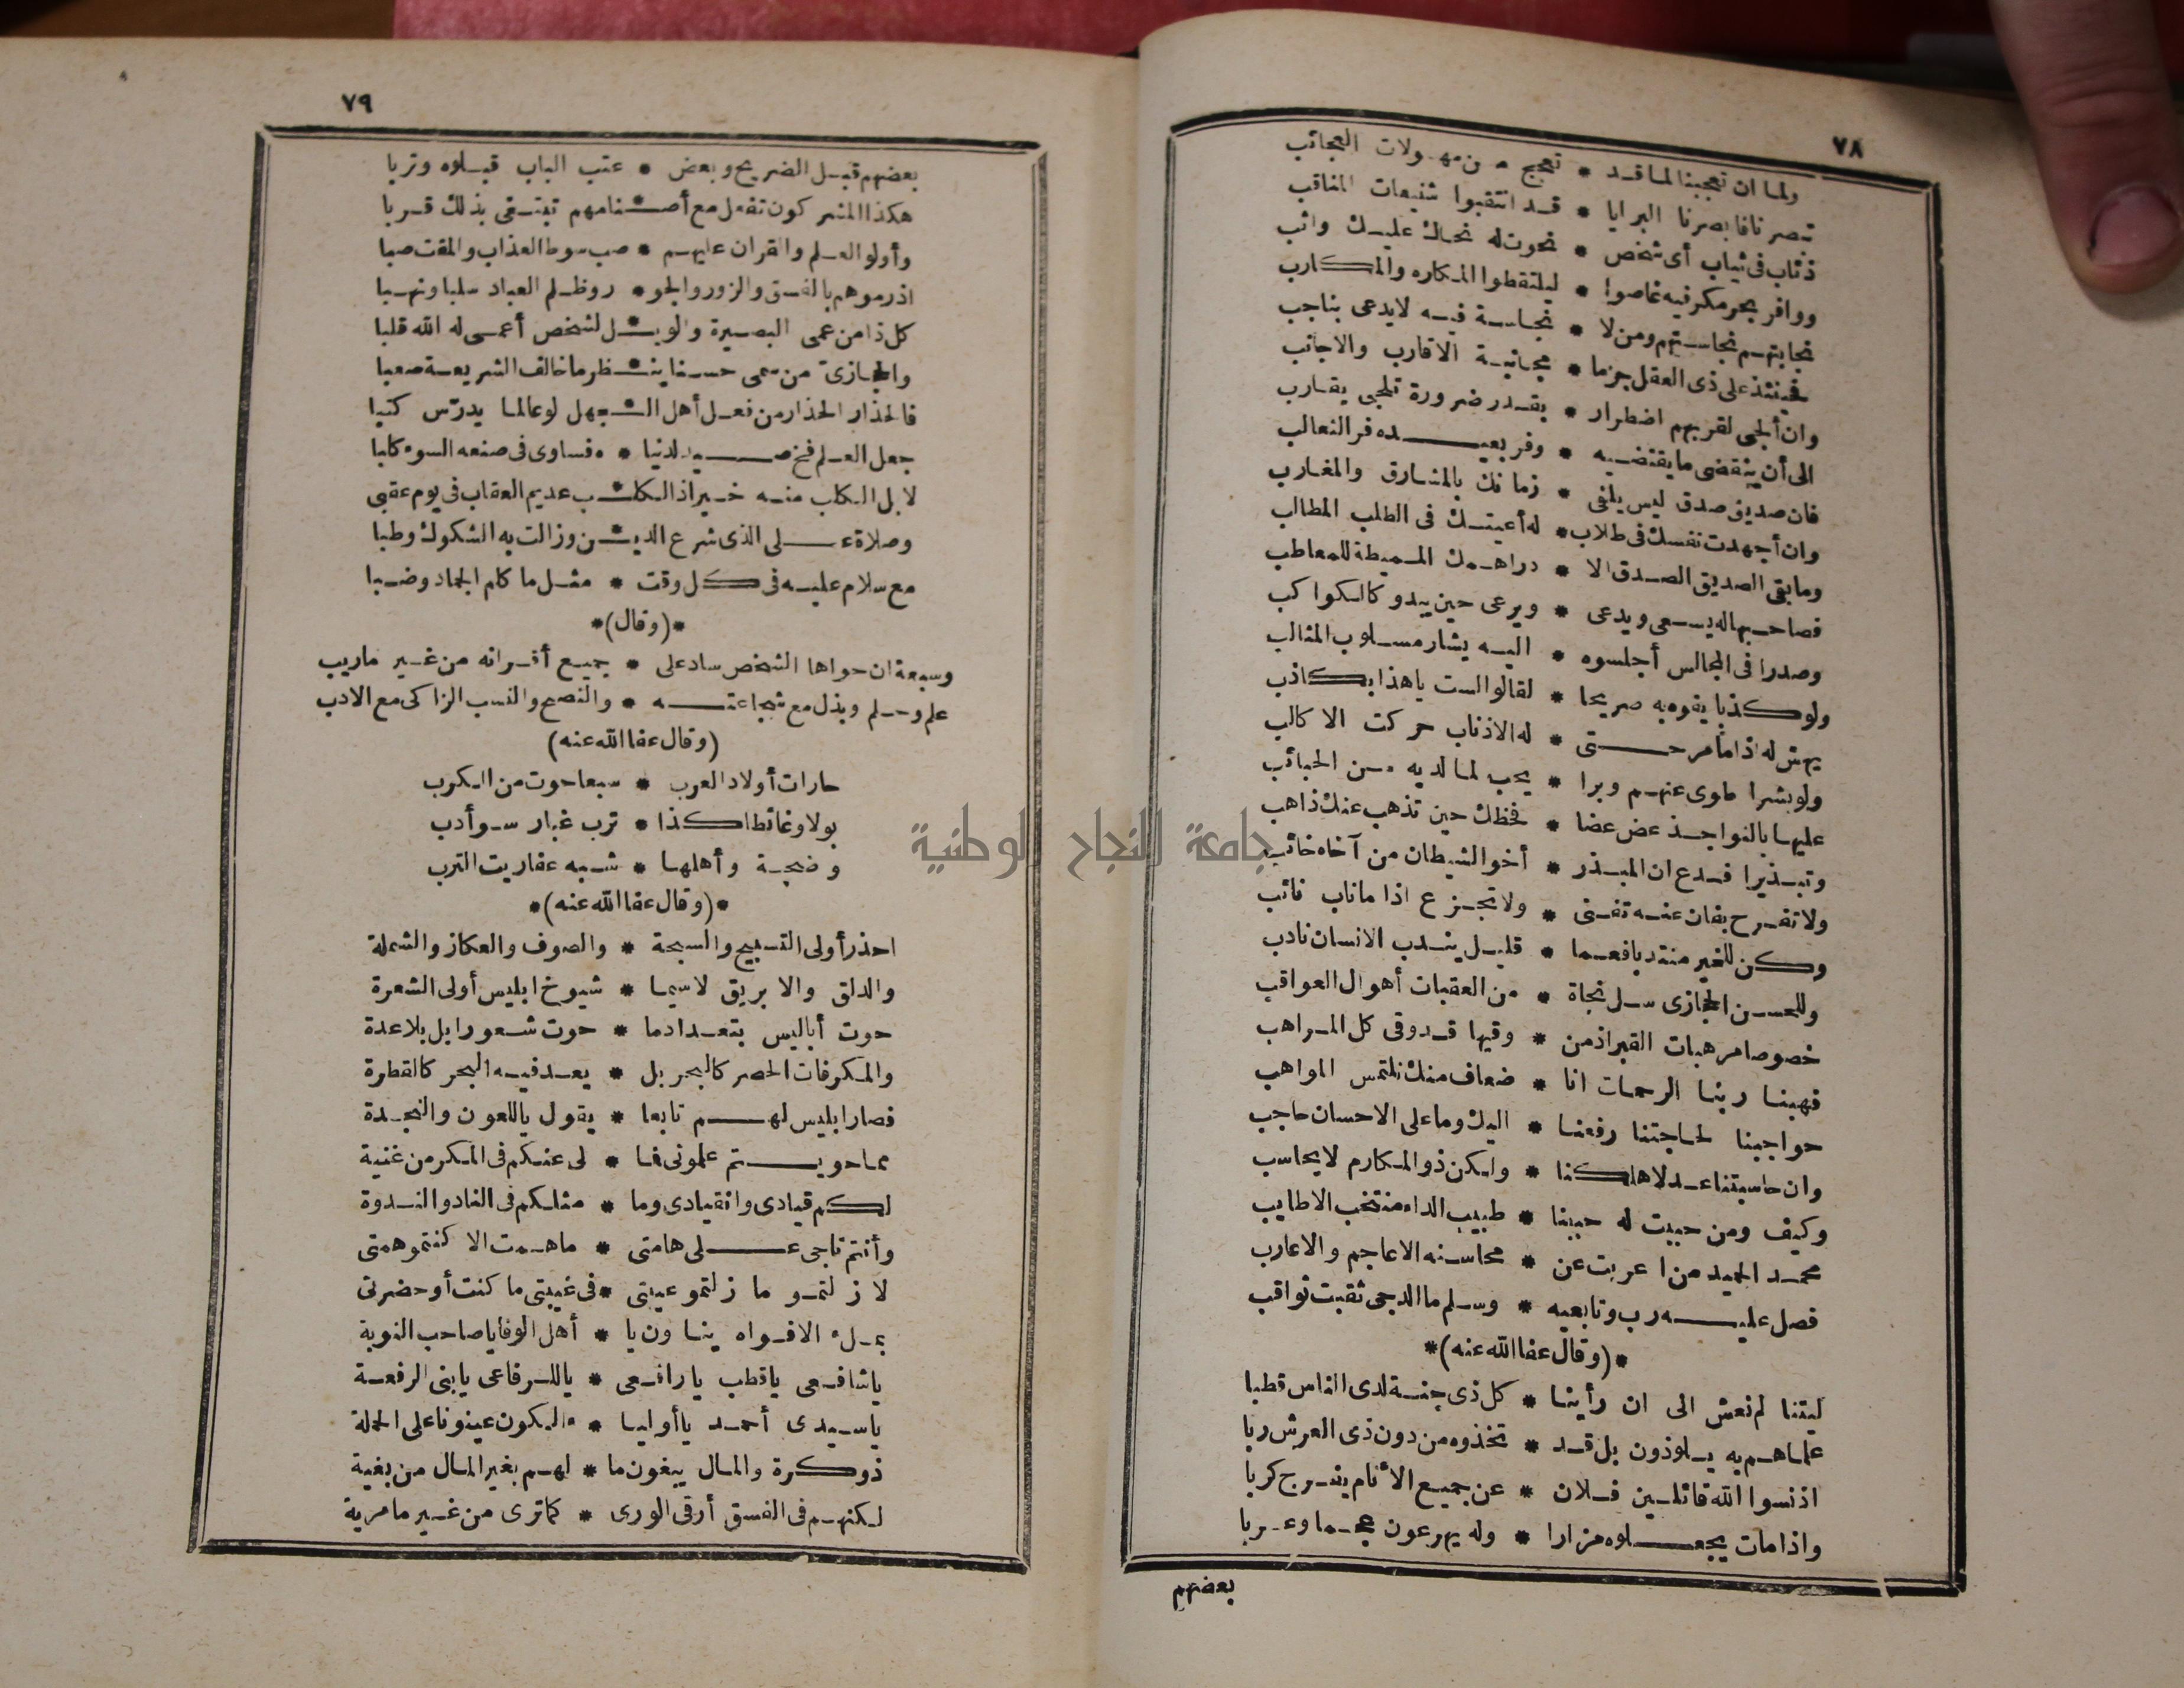 ٧٨
ولما ان تعجبنا لما قد * تعجج من مهولات العجائب
تبصرنا فابصرنا البرايا * قد انتقبوا شنيعات المناقب
ذئاب فى ثياب أى شخص * نحوت له نحاك عليك واثب
ووافر بحر مكر فيه غاصوا * ليلتقطوا المكاره والمكارب
نجابتهم نجاستهم ومن لا * نجاسة فيه لا يدعى بناجب
فحينئذ على ذى العقل جزما * مجانبة الاقارب والاجانب
وان ألجى لقربهم اضطرار * بقدر ضرورة تلجى يقارب
الى أن ينقضى ما يقتضيه * وفر بعيده فر الثعالب
فان صديق صدق ليس يلفى * زمانك بالمشارق والمغارب
وان أجهدت نفسك فى طلاب * له أعيتك فى الطلب المطالب
وما بقى الصديق الصدق الا * دراهمك المميطة للمعاطب
فصاحبها له يسعى ويدعى * ويرعى حين يبدو كالكواكب
وصدرا فى المجالس أجلسوه * اليه يشار مسلوب المثالب
ولو كذبا يفوه به صريحا * لقالوا لست يا هذا بكاذب
يهش له اذا ما مر حتى * له الاذناب حركت الاكالب
ولو بشرا طوى عنهم وبرا * يحب لما لديه من الحبائب
عليها بالنواجذ عض عضا * فحظك حين تذهب عنك ذاهب
وتبذيرا فدع ان المبذر * أخو الشيطان من آخاه خائب
ولا تفرح بفان عنه تفنى * ولا تجزع اذا ما ناب نائب
وكن للخير منتدبا فعما * قليل يندب الانسان نادب
وللحسن الحجازى سل نجاة * من العقبات أهوال العواقب
خصوصا مرهبات القبر اذ من * وقيها قد وقى كل المراهب
فهبنا ربنا الرحمات انا * ضعاف منك نلتمس المواهب
حواجبنا لحاجتنا رفعنا * اليك وما على الاحسان حاجب
وان حاسبتنا عدلا هلكنا * ولكن ذو المكارم لا يحاسب
وكيف ومن حبيت له حبينا * طبيب الداء منتخب الاطايب
محمد الحميد من اعربت عن * محاسنه الاعاجم والاعارب
فصل عليه رب وتابعيه * وسلم ما الدجى ثقبت ثواقب
*(وقال عفا الله عنه)*
ليتنا لم نعش الى ان رأينا * كل ذى جنة لدى الناس قطبا
علماهم به يلوذون بل قد * تخذوه من دون ذى العرش ربا
اذ نسوا الله قائلين فلان * عن جميع الأنام يفرج كربا
واذا مات يجعلوه مزارا * وله يهرعون عجما وعربا
بعضهم
٧٩
بعضهم قبل الضريح وبعض * عتب الباب قبلوه وتربا
هكذا المشركون تفعل مع أصنامهم تبتغى بذلك قربا
وأولو العلم والقران عليهم * صب سوط العذاب والمقت صبا
اذ رموهم بالفسق والزور والجو * روظلم العباد سلبا ونهبا
كل ذا من عمى البصيرة والويل لشخص أعمى له الله قلبا
والحجازى من سمى حسنا ينظر ما خالف الشريعة صعبا
فالحذار الحذار من فعل أهل الجهل لو عالما يدرّس كتبا
جعل العلم فخ صيد لدنيا * فساوى فى صنعه السوء كلبا
لا بل الكلب منه خير اذ الكلب عديم العقاب فى يوم عقبى
وصلاة على الذى شرع الدين وزالت به الشكوك وطبا
مع سلام عليه فى كل وقت * مثل ما كام الجماد وضبا
*(وقال)*
وسبعة ان حواها الشخص ساد على * جميع أقرانه من غير ما ريب
علم وحلم وبذل مع شجاعته * والنصح والنسب الزاكى مع الادب
(وقال عفا الله عنه)
حارات أولاد العرب * سبعا حوت من الكرب
بولا وغائطا كذا * ترب غبار سو أدب
وضجة وأهلها * شبه عفاريت الترب
*(وقال عفا الله عنه)*
احذر أولى التسبيح والسبحة * والصوف والعكاز والشملة
والدلق والابريق لا سيما * شيوخ ابليس أولى الشعرة
حوت أباليس بتعدادما * حوت شعورا بل بلا عدة
والمكر فات الحصر كالبحر بل * يعد فيه البحر كالقطرة
فصار ابليس لهم تابعا * يقول يا للعون والنجدة
مما حويتم علمونى فما * لى عنكم فى المكر من غنية
لكم قيادى وانقيادى وما * مثلكم فى الناد والندوة
وأنتم تاجى على هامتى * ما همت الا كنتمو همتى
لا زلتمو ما زلتمو عيبتى * فى غيبتى ما كنت أو حضرتى
بملء الافواه ينادون يا * أهل الوفا يا صاحب النوبة
يا شافعى يا قطب يا رافعى * يا للرفاعى يا بنى الرفعة
يا سيدى أحمد يا أوليا * اليكون عينونا على الحملة
ذو كرة والمال يبغون ما * لهم بغير المال من بغية
لكنهم فى الفسق أرقى الورى * كما ترى من غير ما مرية
جامعة النجاح الوطنية